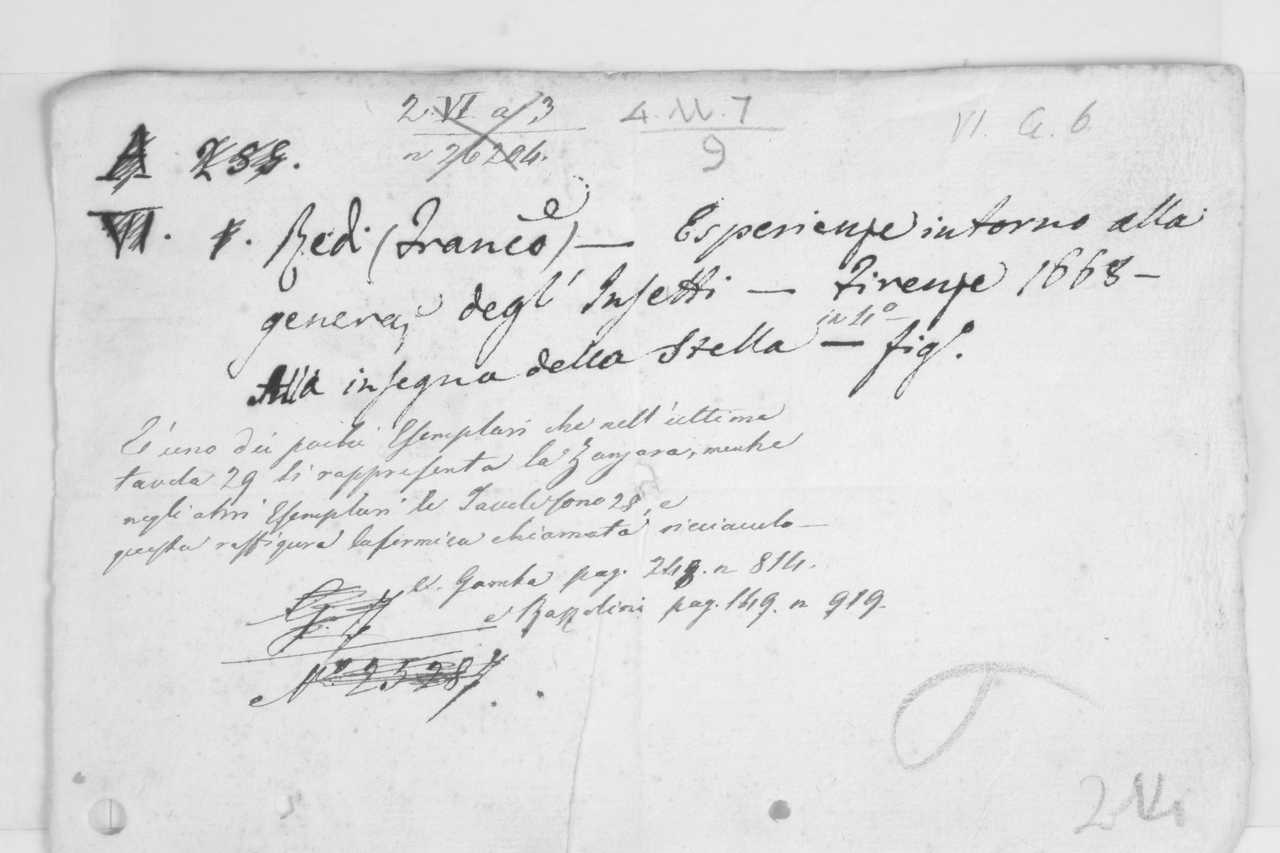 2. VI. a/3 4. M. 7 VI. G. 6
n 26204. 9
A 285.
VI. 1. Redi (Franc.o) — Esperienze intorno alla
generaz.e degl' Insetti — Firenze 1668 —
in 4.o
Alla insegna della Stella — fig.o
E' uno dei pochi Esemplari che nell'ultima
tavola 29 si rappresenta la Zanzara, mentre
negli altri Esemplari le Tavole sono 28, e
questa raffigura la formica chiamata
V. Gamba pag. 248. n 814.
e Razzolini pag. 149. n 919.
N.o 25287.